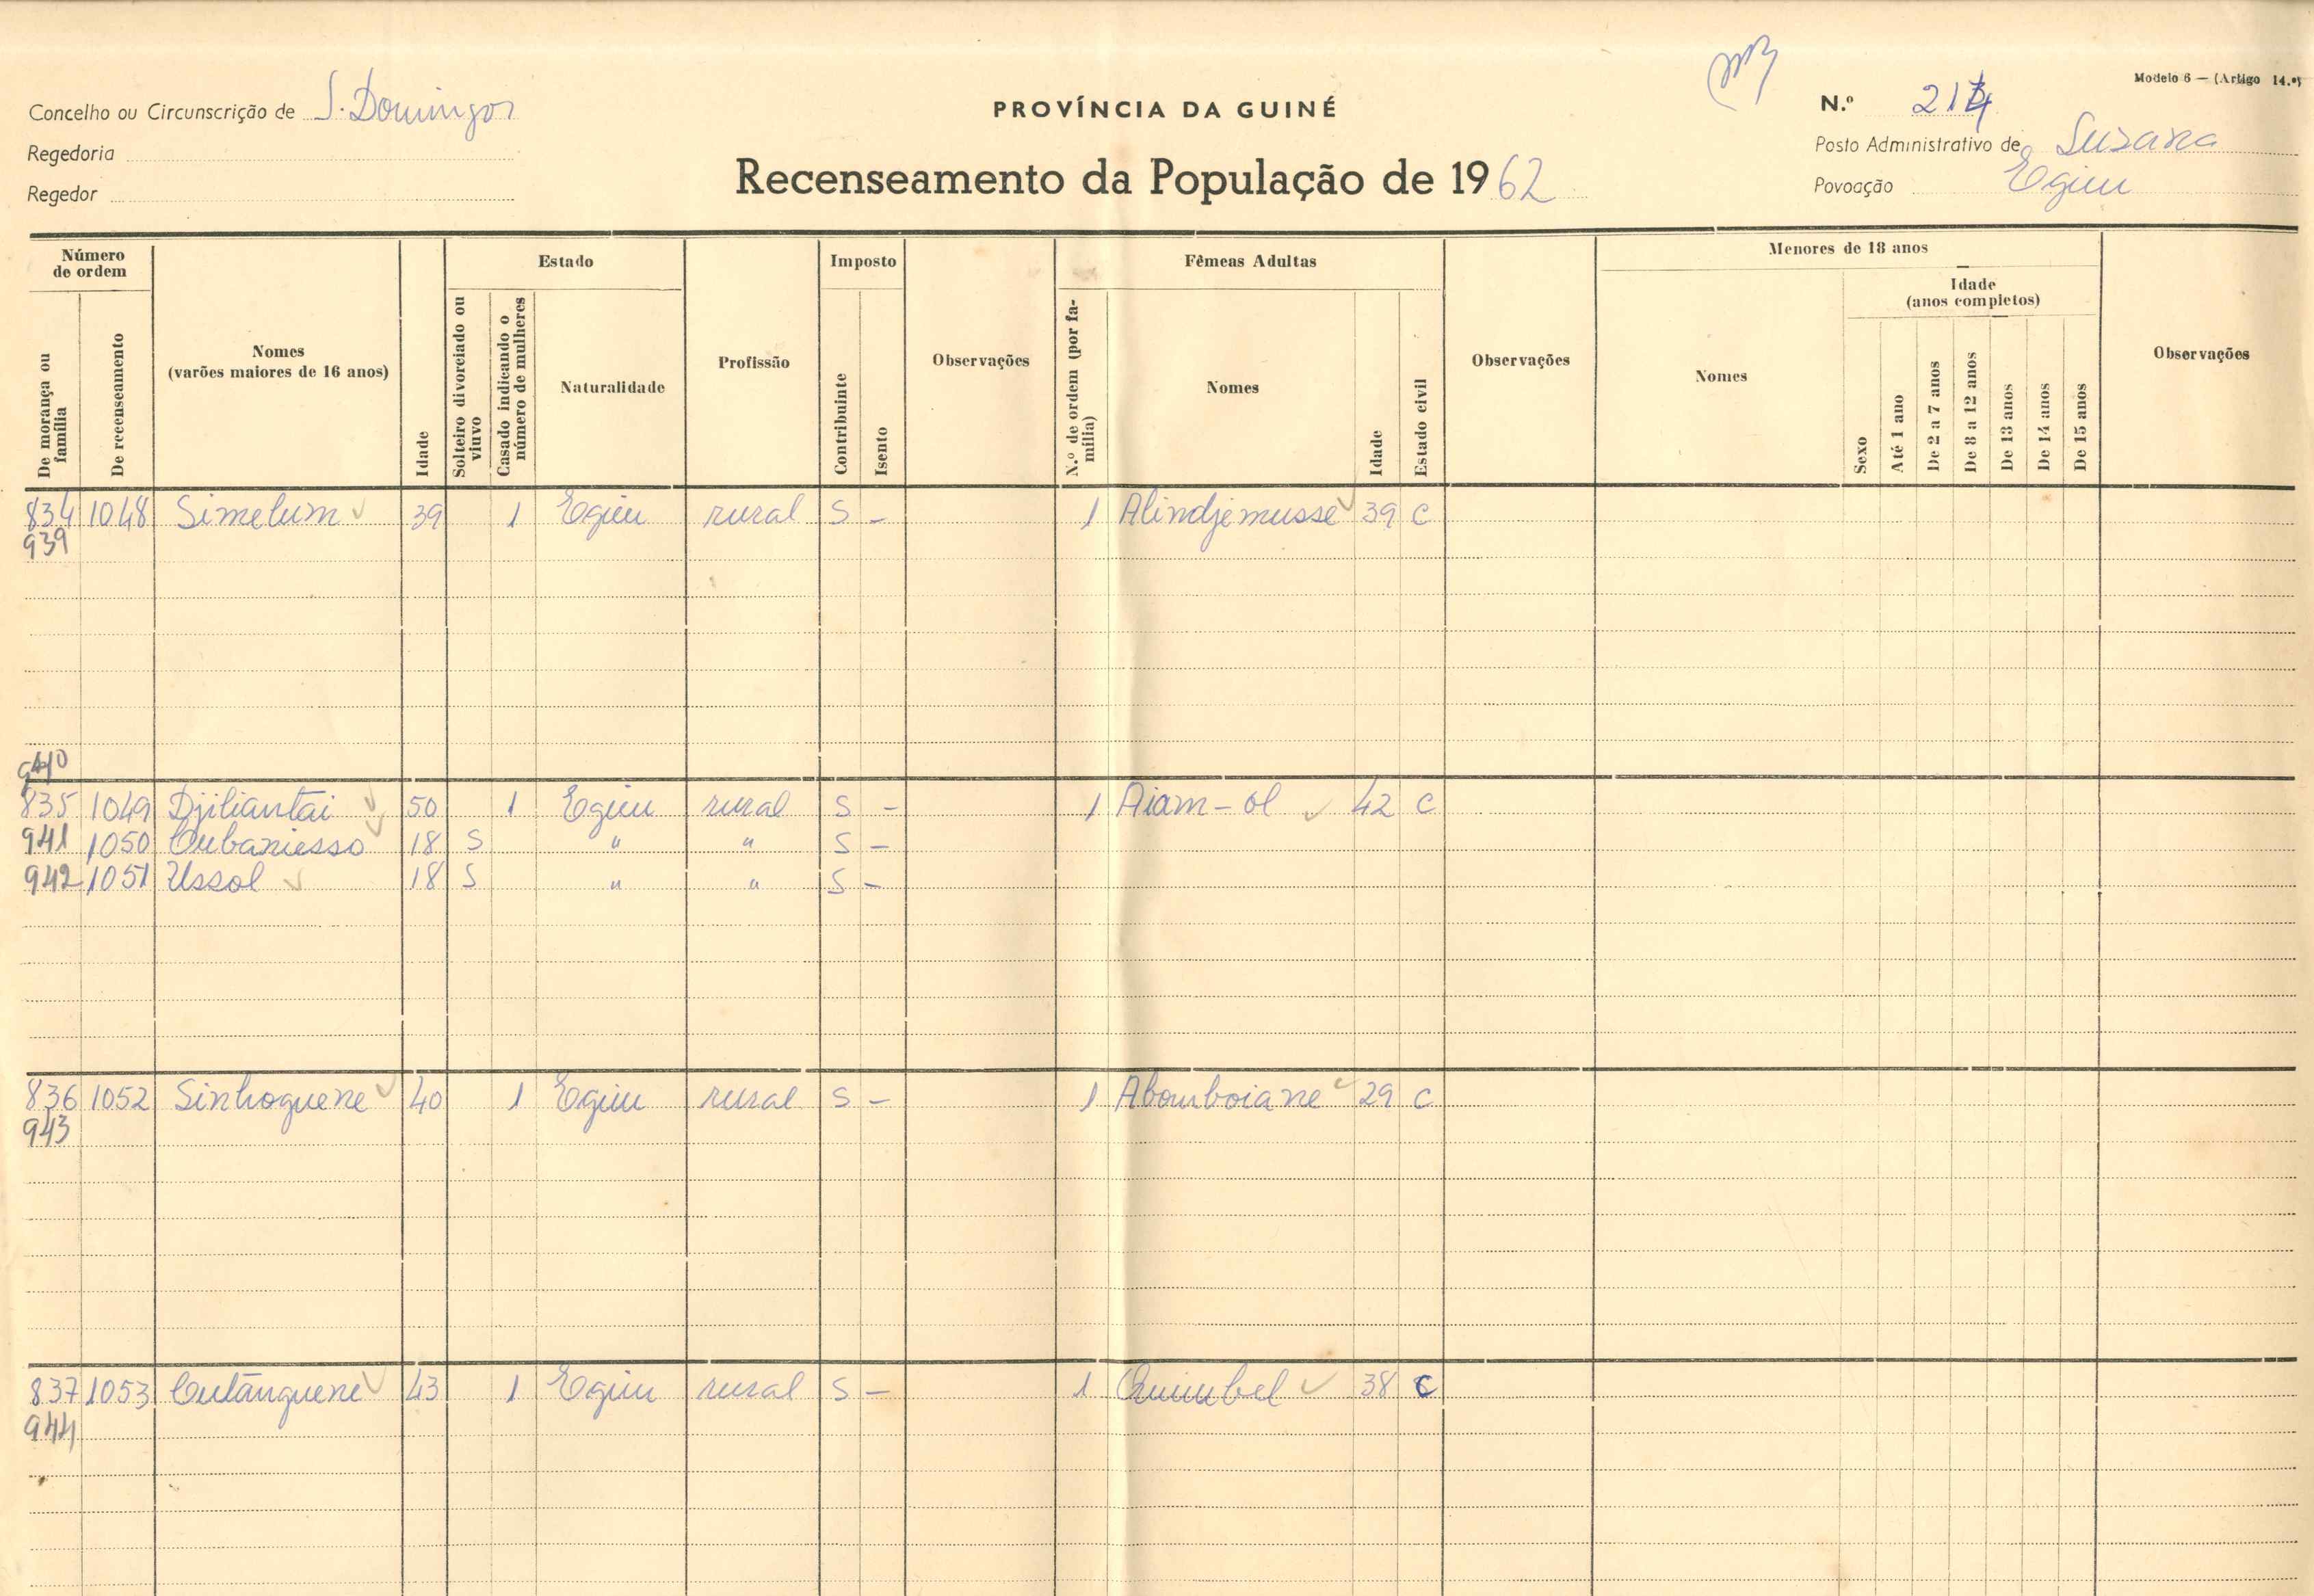 Modelo 6 — (Artigo 14.º)
Concelho ou Circunscrição de S. Domingos
PROVÍNCIA DA GUINÉ
N.º 214
Regedoria
Posto Administrativo de Susana
Regedor
Recenseamento da População de 1962
Povoação Egiin
Número de ordem
De morança ou família
De recenseamento
Nomes (varões maiores de 16 anos)
Idade
Estado
Solteiro divorciado ou viuvo
Casado indicando o número de mulheres
Naturalidade
Profissão
Imposto
Contribuinte
Isento
Observações
Fêmeas Adultas
N.º de ordem (por família)
Nomes
Idade
Estado civil
Observações
Menores de 18 anos
Nomes
Sexo
Idade (anos completos)
Até 1 ano
De 2 a 7 anos
De 8 a 12 anos
De 13 anos
De 14 anos
De 15 anos
Observações
834 1048 Simelum 39 1 Egiin rural S - 1 Alindjemusse 39 C
939
940
835 1049 Djiliantai 50 1 Egiin rural S - 1 Aiam-ol 42 C
941 1050 Cubaniesso 18 S " " S -
942 1051 Ussol 18 S " " S -
836 1052 Sinhoguene 40 1 Egiin rural S - 1 Abomboiane 29 C
943
837 1053 Cutanguene 43 1 Egiin rural S - 1 38 C
944